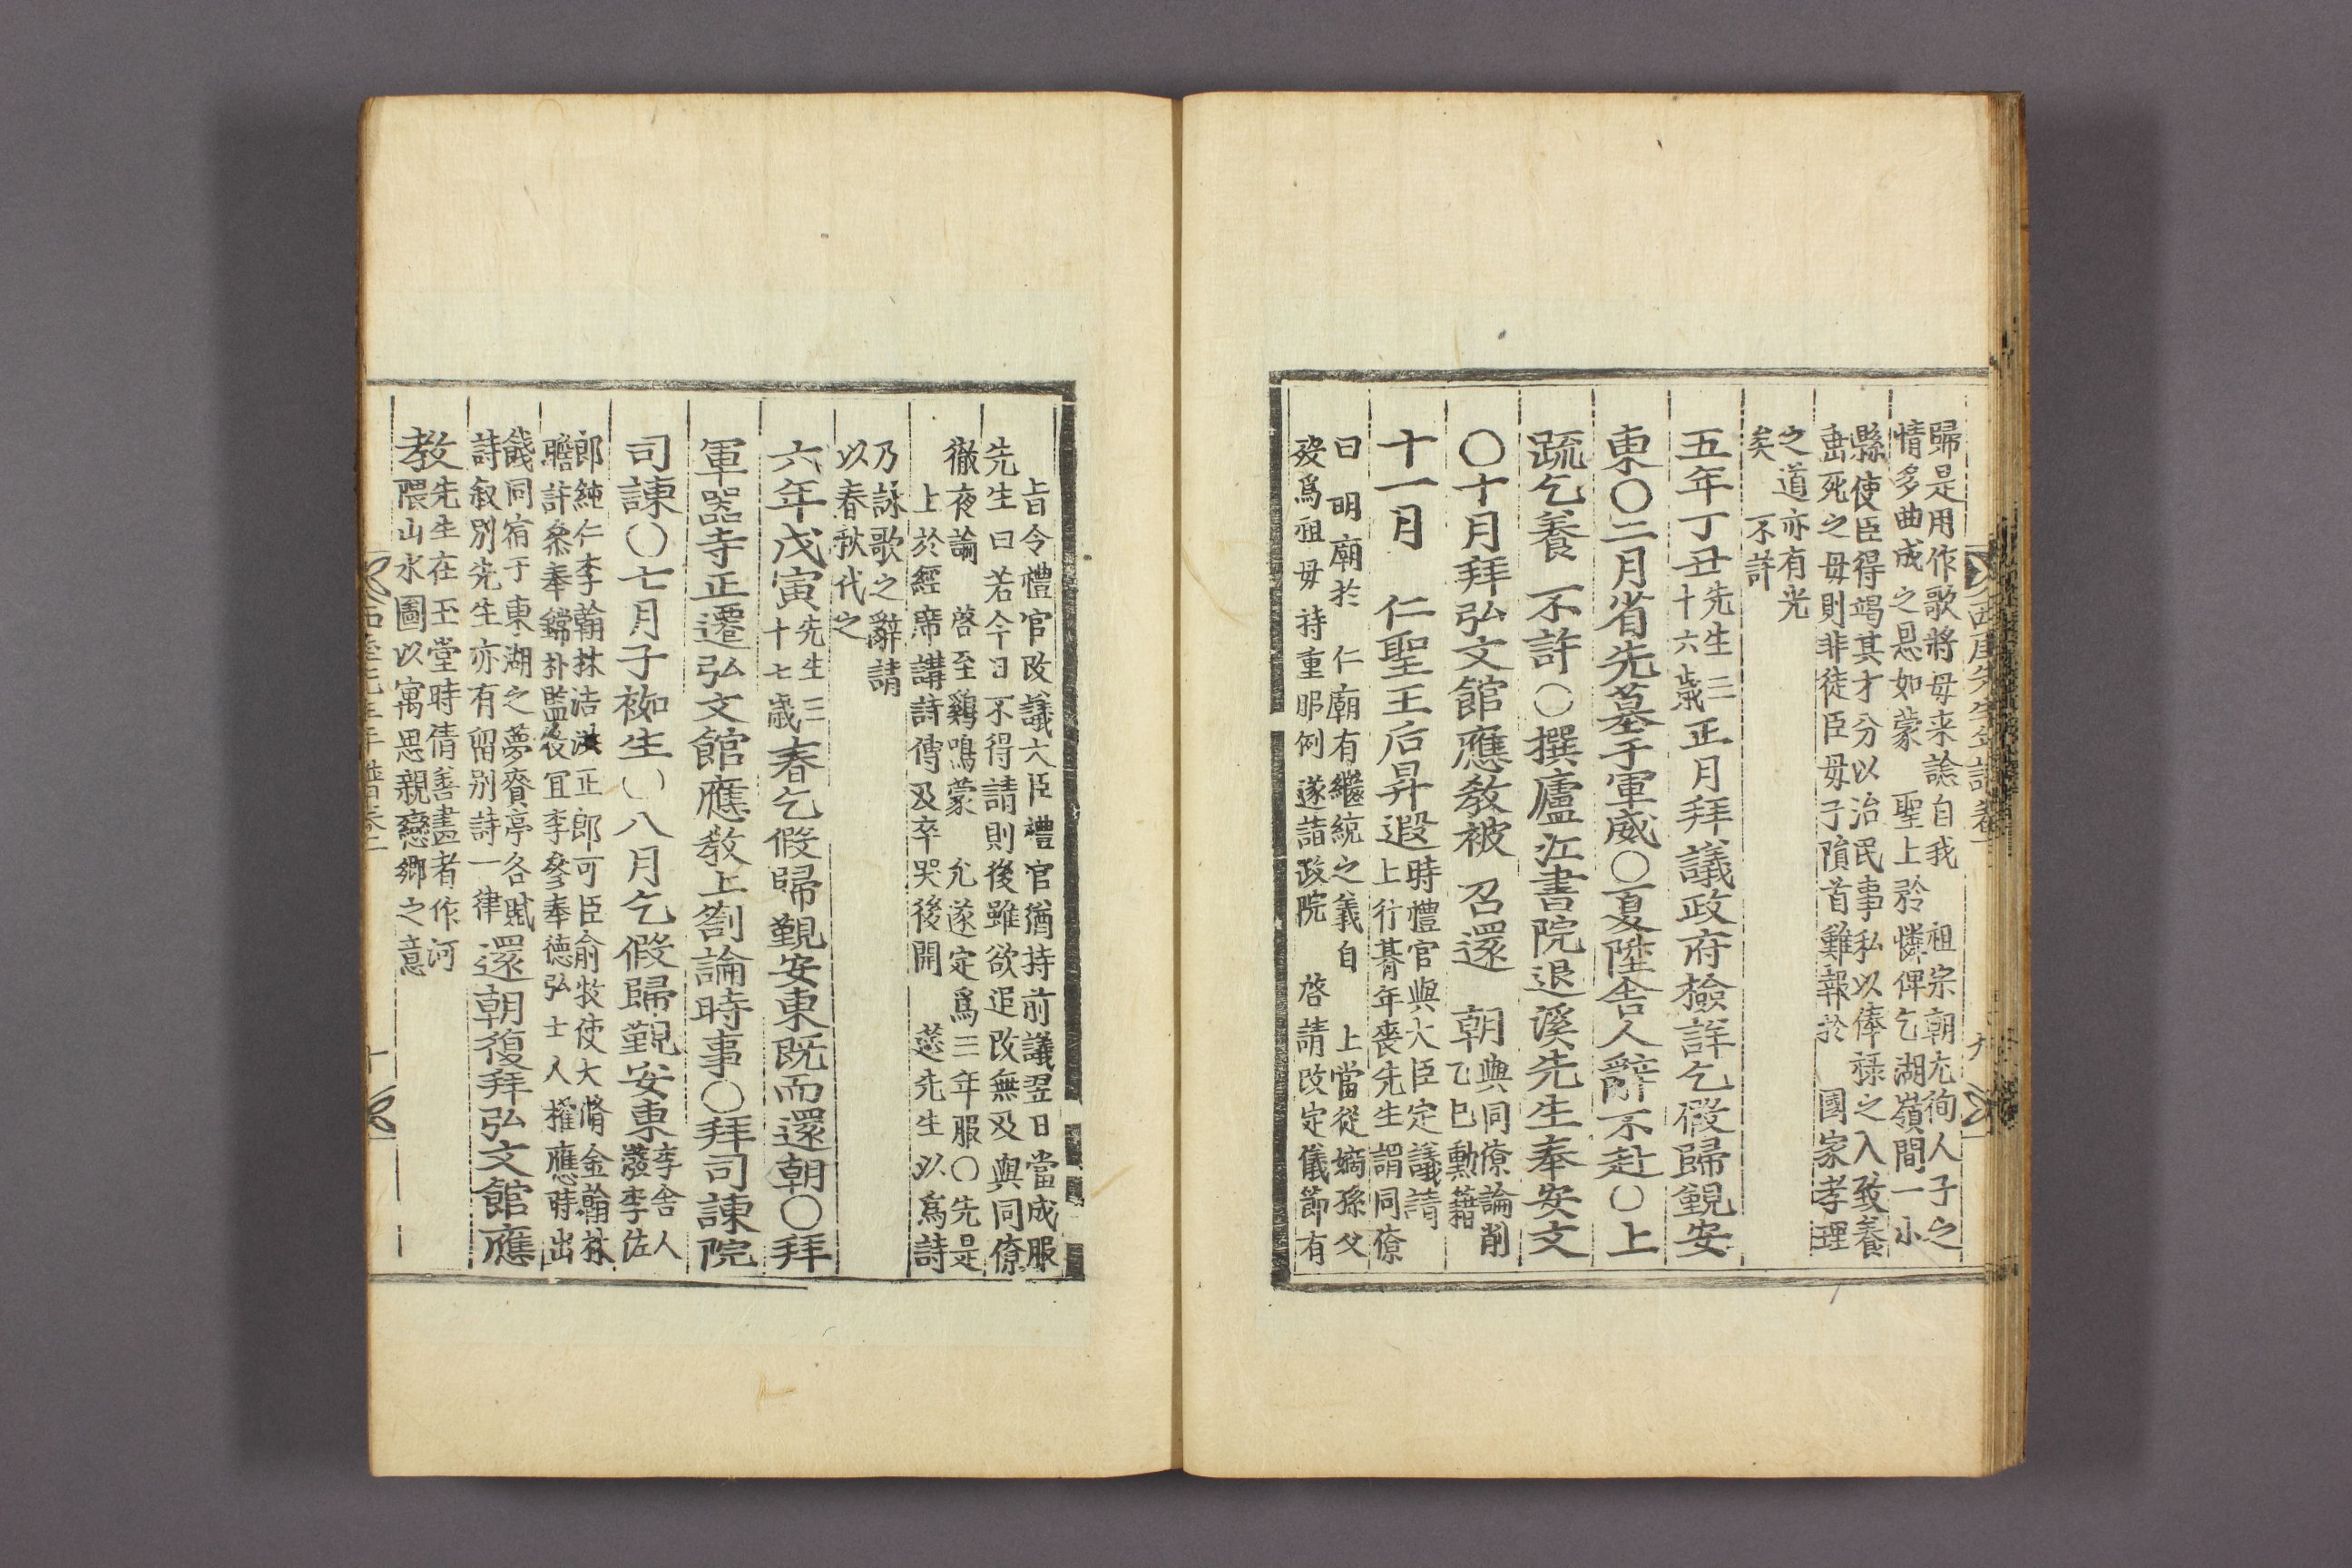 歸是用作歌將母来諗自我　祖宗朝尤徇人子之
情多曲成之恩如蒙　聖上矜憐俾乞湖嶺間一小
縣使臣得竭其才分以治民事私以俸祿之入致養
垂死之母則非徒臣母子隕首難報於　國家孝理
之道亦有光
矣　不許
五年丁丑先生三十六歲正月拜議政府檢詳乞假歸覲安
東〇二月省先墓于軍威〇夏陞舍人辭不赴〇上
疏乞養　不許〇撰廬江書院退溪先生奉安文
〇十月拜弘文館應敎被　召還　朝與同僚論削乙巳勳籍
十一月　仁聖王后昇遐時禮官與大臣定議請上行朞年喪先生謂同僚
曰　明廟於　仁廟有繼統之義自　上當從嫡孫父
歿爲祖母持重服例遂詣政院　啓請改定儀節有
旨令禮官改議大臣禮官猶持前議翌日當成服
先生曰若今日不得請則後雖欲追改無及與同僚
徹夜論　啓至鷄鳴蒙　允遂定爲三年服〇先是
上於經席講詩傳及卒哭後開　筵先生以爲詩
乃詠歌之辭請
以春秋代之
六年戊寅先生三十七歲春乞假歸覲安東旣而還朝〇拜
軍器寺正遷弘文館應敎上劄論時事〇拜司諫院
司諫〇七月子袽生〇八月乞假歸覲安東李舍人潑李佐
郎純仁李翰林洁洪正郎可臣兪牧使大脩金翰林
瞻許叅奉鏛朴監役宜李參奉德弘士人權應時出
餞同宿于東湖之夢賚亭各賦
詩叙別先生亦有留別詩一律還朝復拜弘文館應
敎先生在玉堂時倩善畵者作河
隈山水圖以寓思親戀鄉之意
西厓先生年譜卷一
九
十